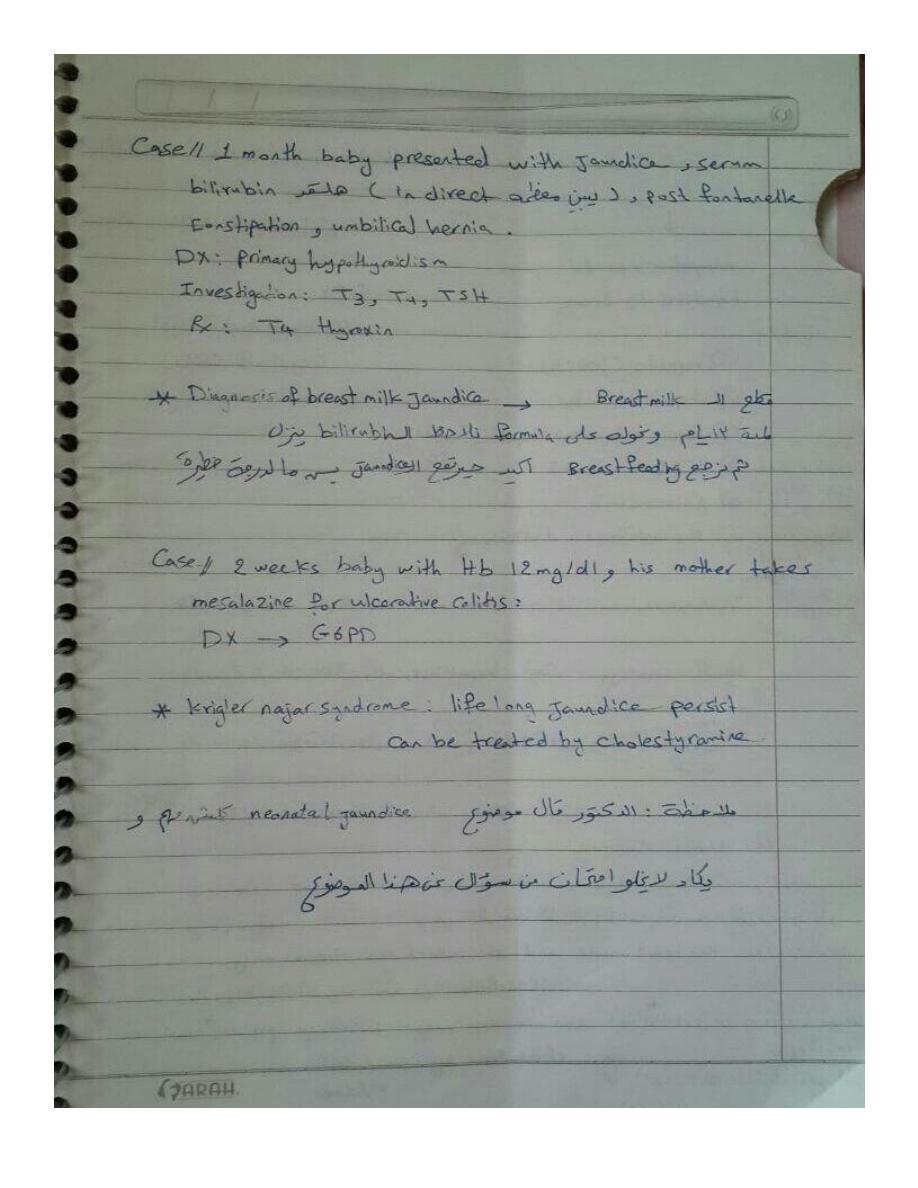 Case// 1 month baby presented with Jaundice, serum
bilirubin هلقد (indirect يبين معظمه), post fontanelle
Constipation, umbilical hernia.
DX: primary hypothyroidism
Investigation: T3, T4, TSH
Rx: T4 thyroxin
* Diagnosis of breast milk Jaundice → نقطع الـ Breast milk
لمدة ٣ ايام ونحوله على formula نلاحظ الـ bilirubin ينزل
ثم نرجع Breast feeding اكيد حيرتفع الـ Jaundice بس ما لدرجة خطيرة
Case// 2 weeks baby with Hb 12mg/dl, his mother takes
mesalazine for ulcorative colitis:
DX → G6PD
* Krigler najar syndrome: life long Jaundice persist
can be treated by cholestyramine.
ملاحظة: الدكتور قال موضوع neonatal jaundice كلش مهم و
يكاد لا يخلو امتحان من سؤال عن هذا الموضوع
SARAH.